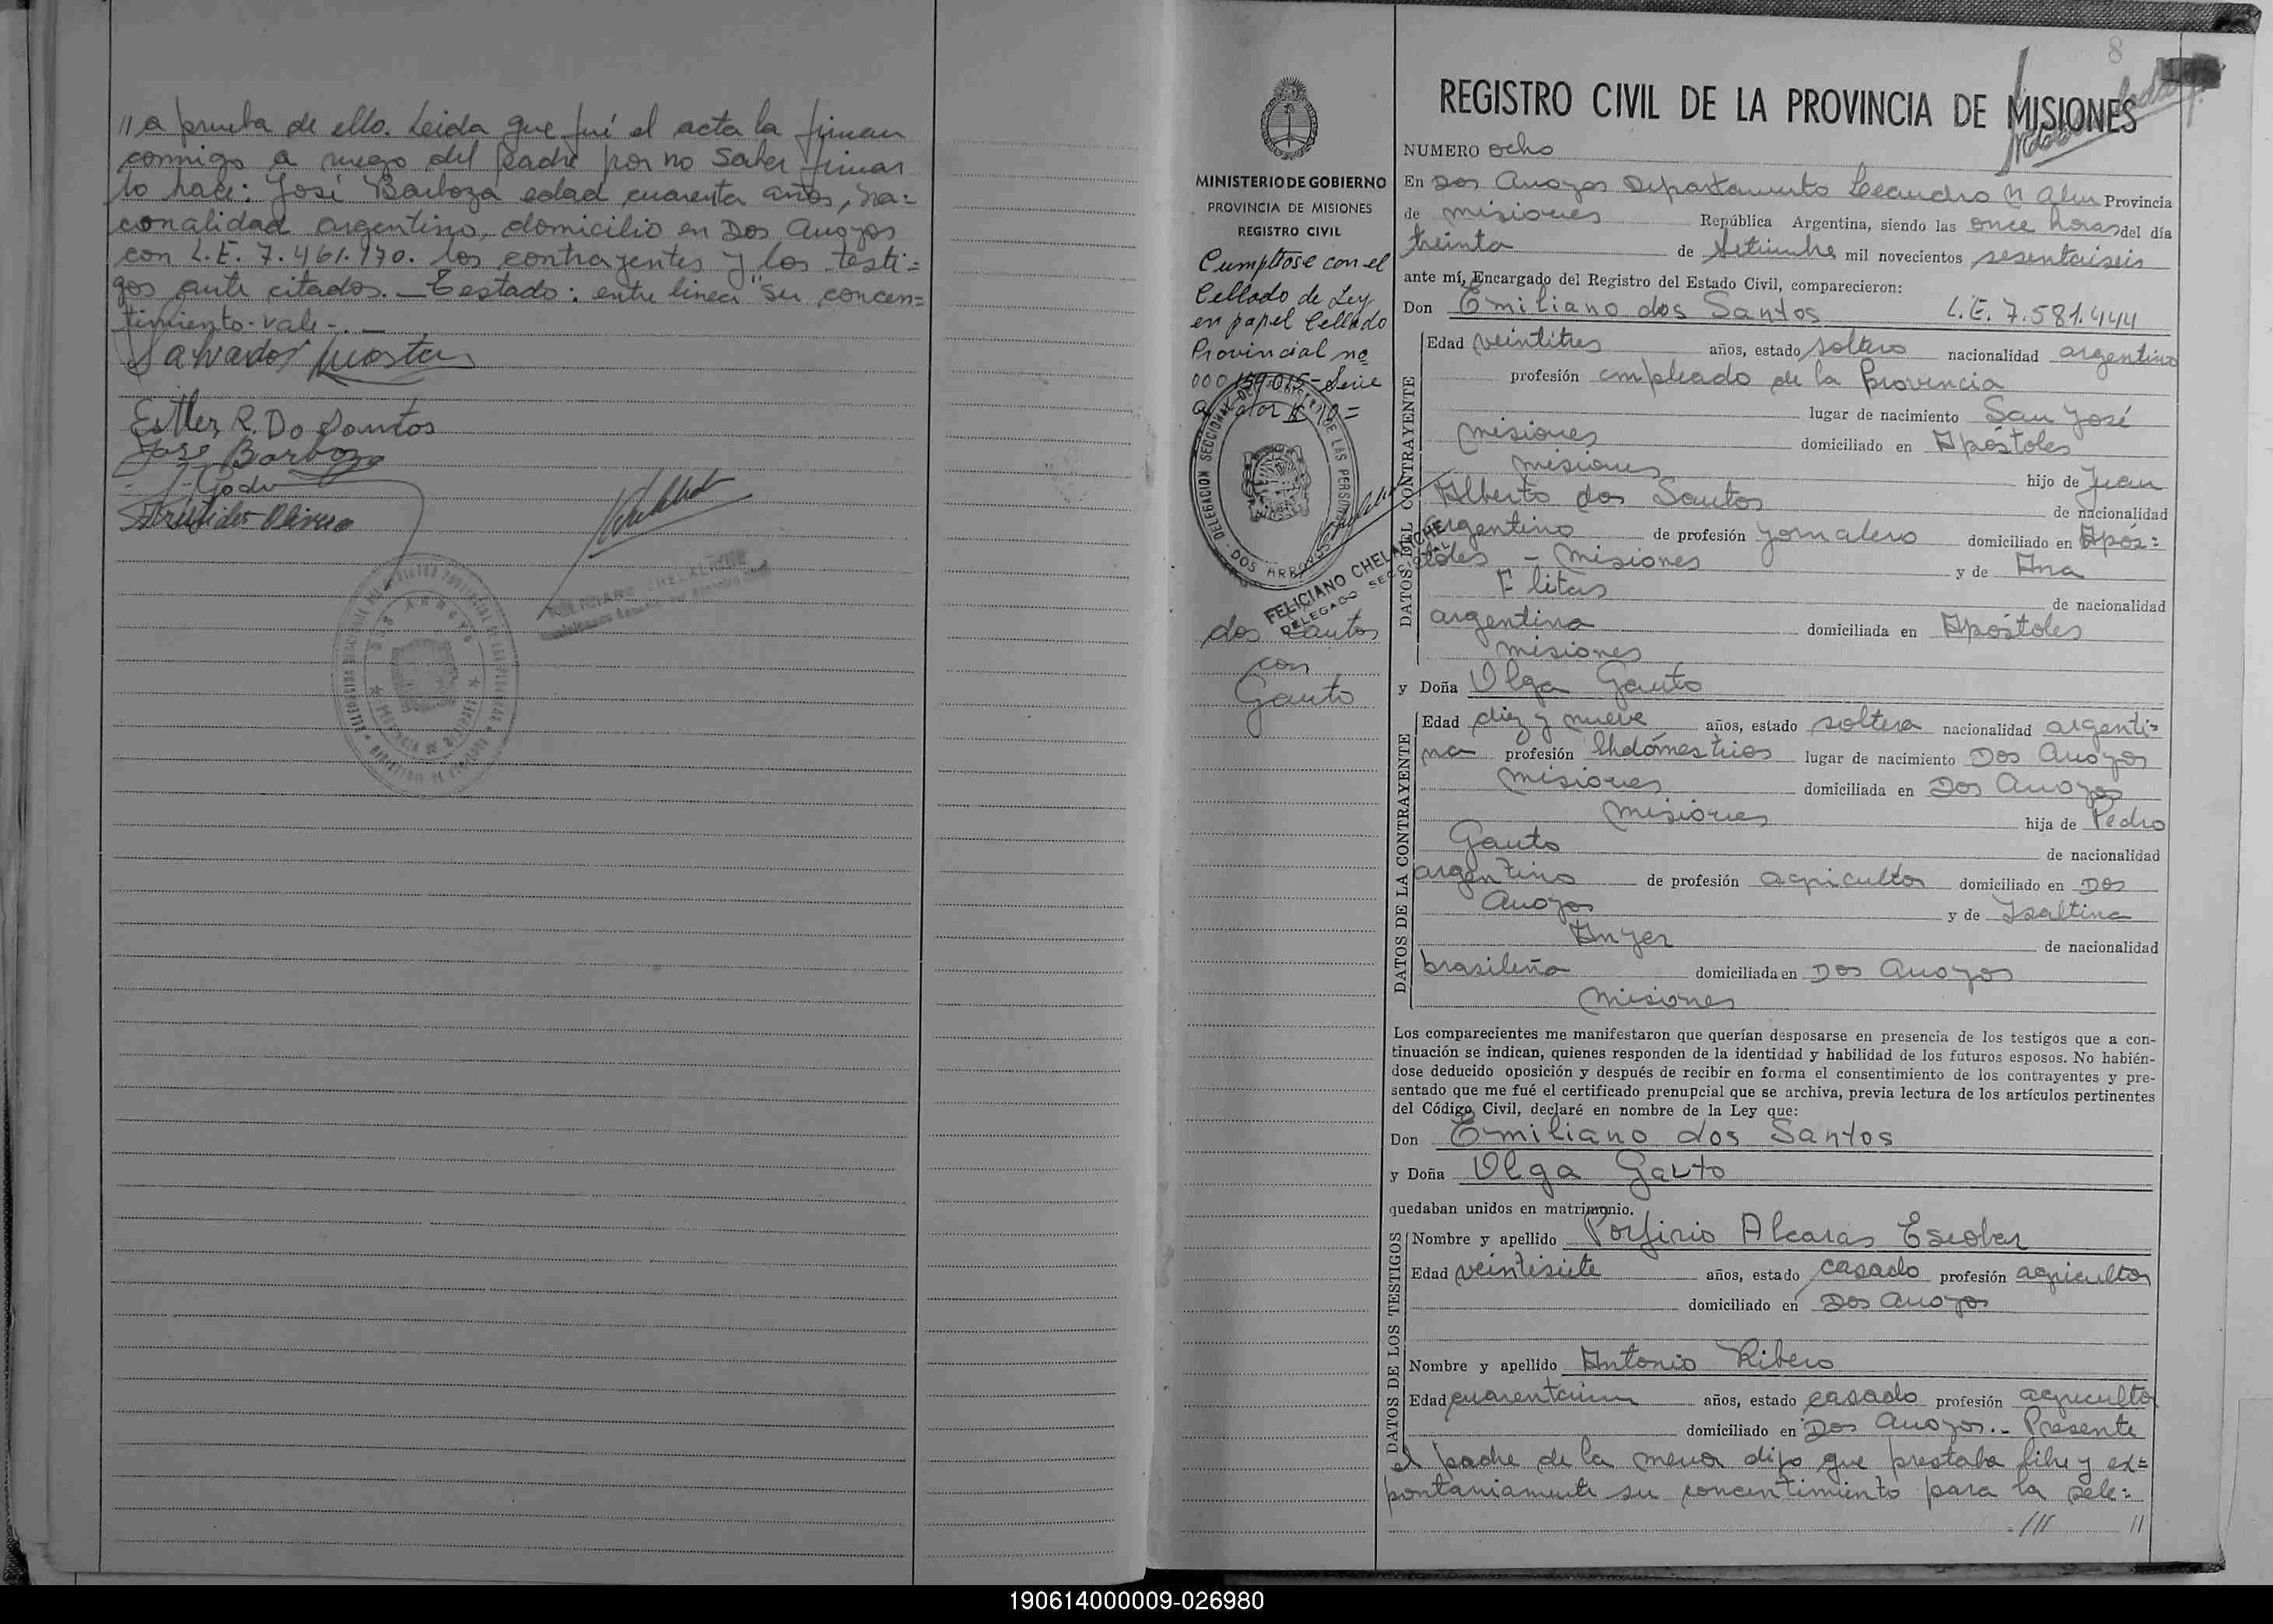 // a prueba de ello. Leida que fué el acta la firman
conmigo a ruego del padre por no saber firmar
lo hace: José Barboza edad cuarenta años, na=
conalidad argentino, domicilio en Dos Arroyos
con L.E. 7.461.170. los contrayentes y los testi=
gos ante citados. _ Testado: entre linea "su concen=
timiento. vale -. _
Salvador
Esther R. Do Santos
Jose Barboza
Godo
Aristides Olivera
8
REGISTRO CIVIL DE LA PROVINCIA DE MISIONES
NUMERO ocho
MINISTERIO DE GOBIERNO
PROVINCIA DE MISIONES
REGISTRO CIVIL
Cumplióse con el
Cellado de Ley
en papel Cellado
Provincial no
000159.015 - Serie
DELEGACION SECCIONAL DE LAS PERSONAS
DOS ARROYOS
FELICIANO CHELALICHE
DELEGADO SECCIONAL
dos Santos
con
Gauto
En Dos Arroyos Departamento Leandro N Alem Provincia
de Misiones República Argentina, siendo las once horas del día
treinta de Setiembre mil novecientos sesentaiseis
ante mí, Encargado del Registro del Estado Civil, comparecieron:
Don Emiliano dos Santos L.E. 7.581.444
DATOS DEL CONTRAYENTE
Edad veintitres años, estado soltero nacionalidad argentino
profesión empleado de la Provincia
lugar de nacimiento San José
Misiones domiciliado en Apóstoles
Misiones hijo de Juan
Alberto dos Santos de nacionalidad
argentino de profesión jornalero domiciliado en Após=
toles - Misiones y de Ana
F litas de nacionalidad
argentina domiciliada en Apóstoles
Misiones
y Doña Olga Gauto
DATOS DE LA CONTRAYENTE
Edad diez y nueve años, estado soltera nacionalidad argenti=
na profesión lugar de nacimiento Dos Arroyos
Misiones domiciliada en Dos Arroyos
Misiones hija de Pedro
Gauto de nacionalidad
argentino de profesión agricultor domiciliado en Dos
Arroyos y de Isaltina
Anger de nacionalidad
brasileña domiciliada en Dos Arroyos
Misiones
Los comparecientes me manifestaron que querían desposarse en presencia de los testigos que a con-
tinuación se indican, quienes responden de la identidad y habilidad de los futuros esposos. No habién-
dose deducido oposición y después de recibir en forma el consentimiento de los contrayentes y pre-
sentado que me fué el certificado prenupcial que se archiva, previa lectura de los artículos pertinentes
del Código Civil, declaré en nombre de la Ley que:
Don Emiliano dos Santos
y Doña Olga Gauto
quedaban unidos en matrimonio.
DATOS DE LOS TESTIGOS
Nombre y apellido Porfirio Alcaras Escobar
Edad veintisiete años, estado casado profesión agricultor
domiciliado en Dos Arroyos
Nombre y apellido Antonio Ribero
Edad cuarentaiun años, estado casado profesión agricultor
domiciliado en Dos Arroyos.- Presente
el padre de la menor dijo que prestaba libre y es=
pontaniamente su concentimiento para la cele=
//
190614000009-026980